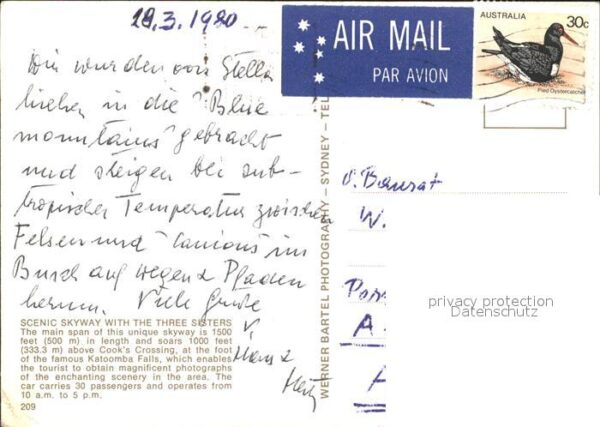 18.3.1980
AIR MAIL
PAR AVION
AUSTRALIA
30c
Pied Oystercatcher
Wir wurden von Stella
lieben in die "Blue
mountains" gebracht
und steigen bei sub-
tropischer Temperatur zwischen
Felsen und "Canions" im
Busch auf wegen & Pfaden
herum. Viele Grüße
v.
Hans &
SCENIC SKYWAY WITH THE THREE SISTERS
The main span of this unique skyway is 1500
feet (500 m) in length and soars 1000 feet
(333.3 m) above Cook's Crossing, at the foot
of the famous Katoomba Falls, which enables
the tourist to obtain magnificent photographs
of the enchanting scenery in the area. The
car carries 30 passengers and operates from
10 a.m. to 5 p.m.
209
WERNER BARTEL PHOTOGRAPHY - SYDNEY - TEL
W.
A
privacy protection
Datenschutz